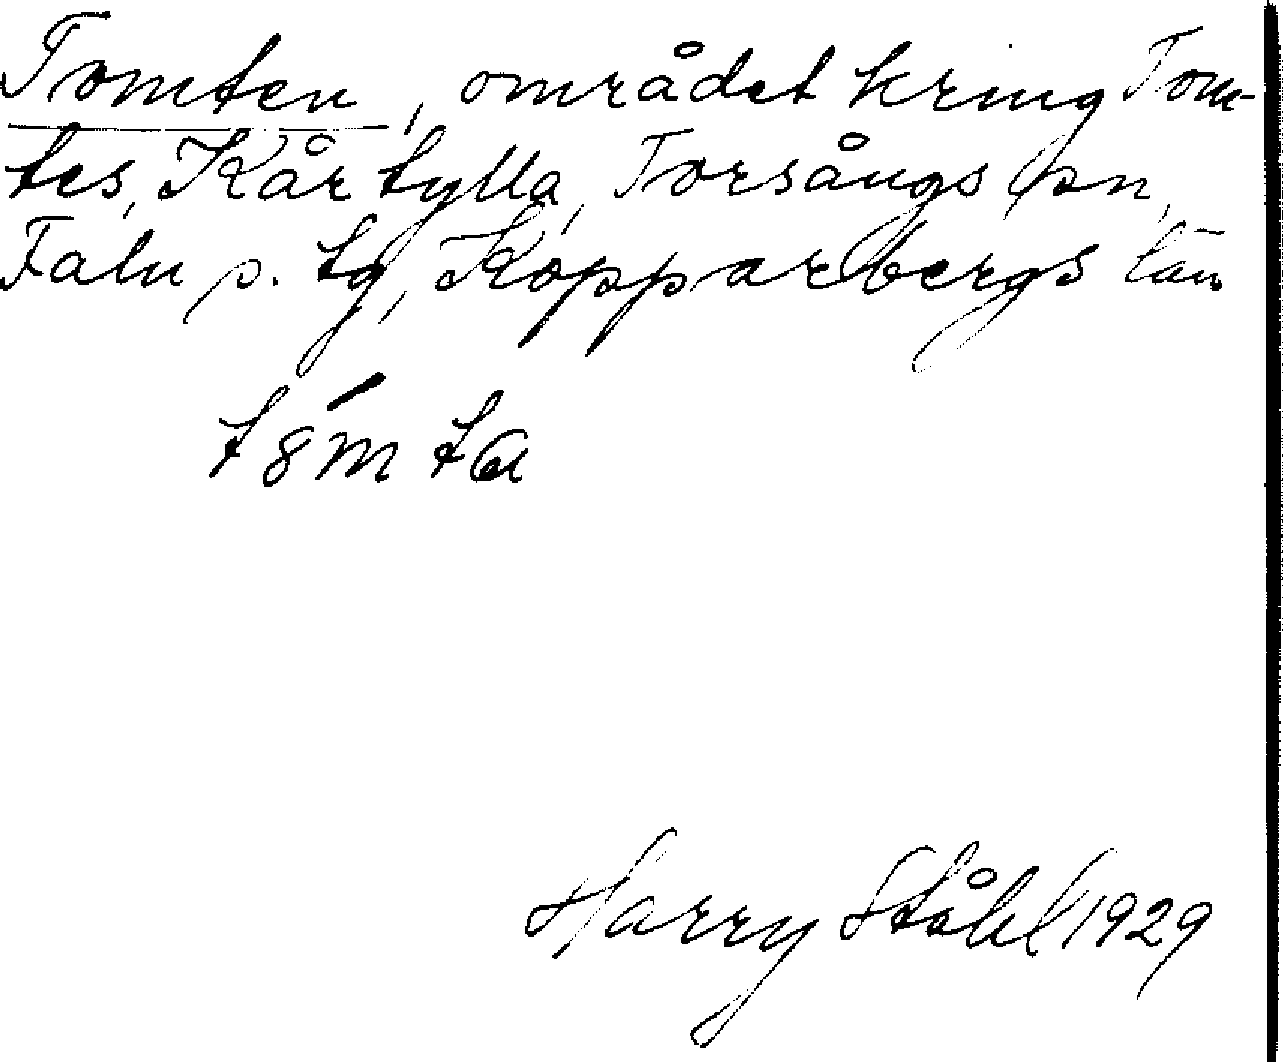 Tomten, området kring Tom-
tes, Kårtylla, Torsångs sn,
Falu s. tg, Kopparbergs län
t8́mta
Harry Ståhl 1929